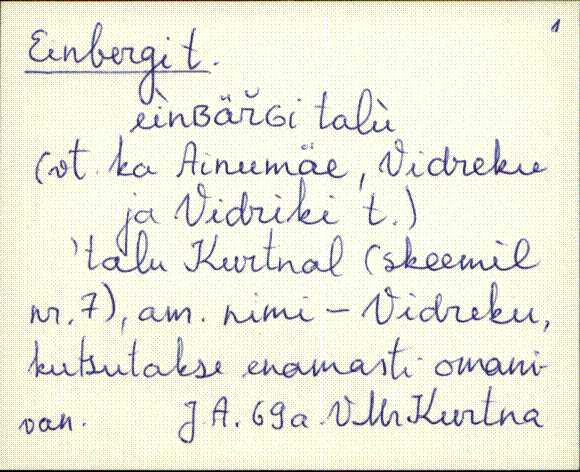 1
Einbergi t.
èinʙäřɢi talù
(vt. ka Ainumäe, Vidreku
ja Vidriki t.)
'talu Kurtnal (skeemil
nr. 7), am. nimi – Vidreku,
kutsutakse enamasti omani-
van. J A. 69 a VMr Kurtna